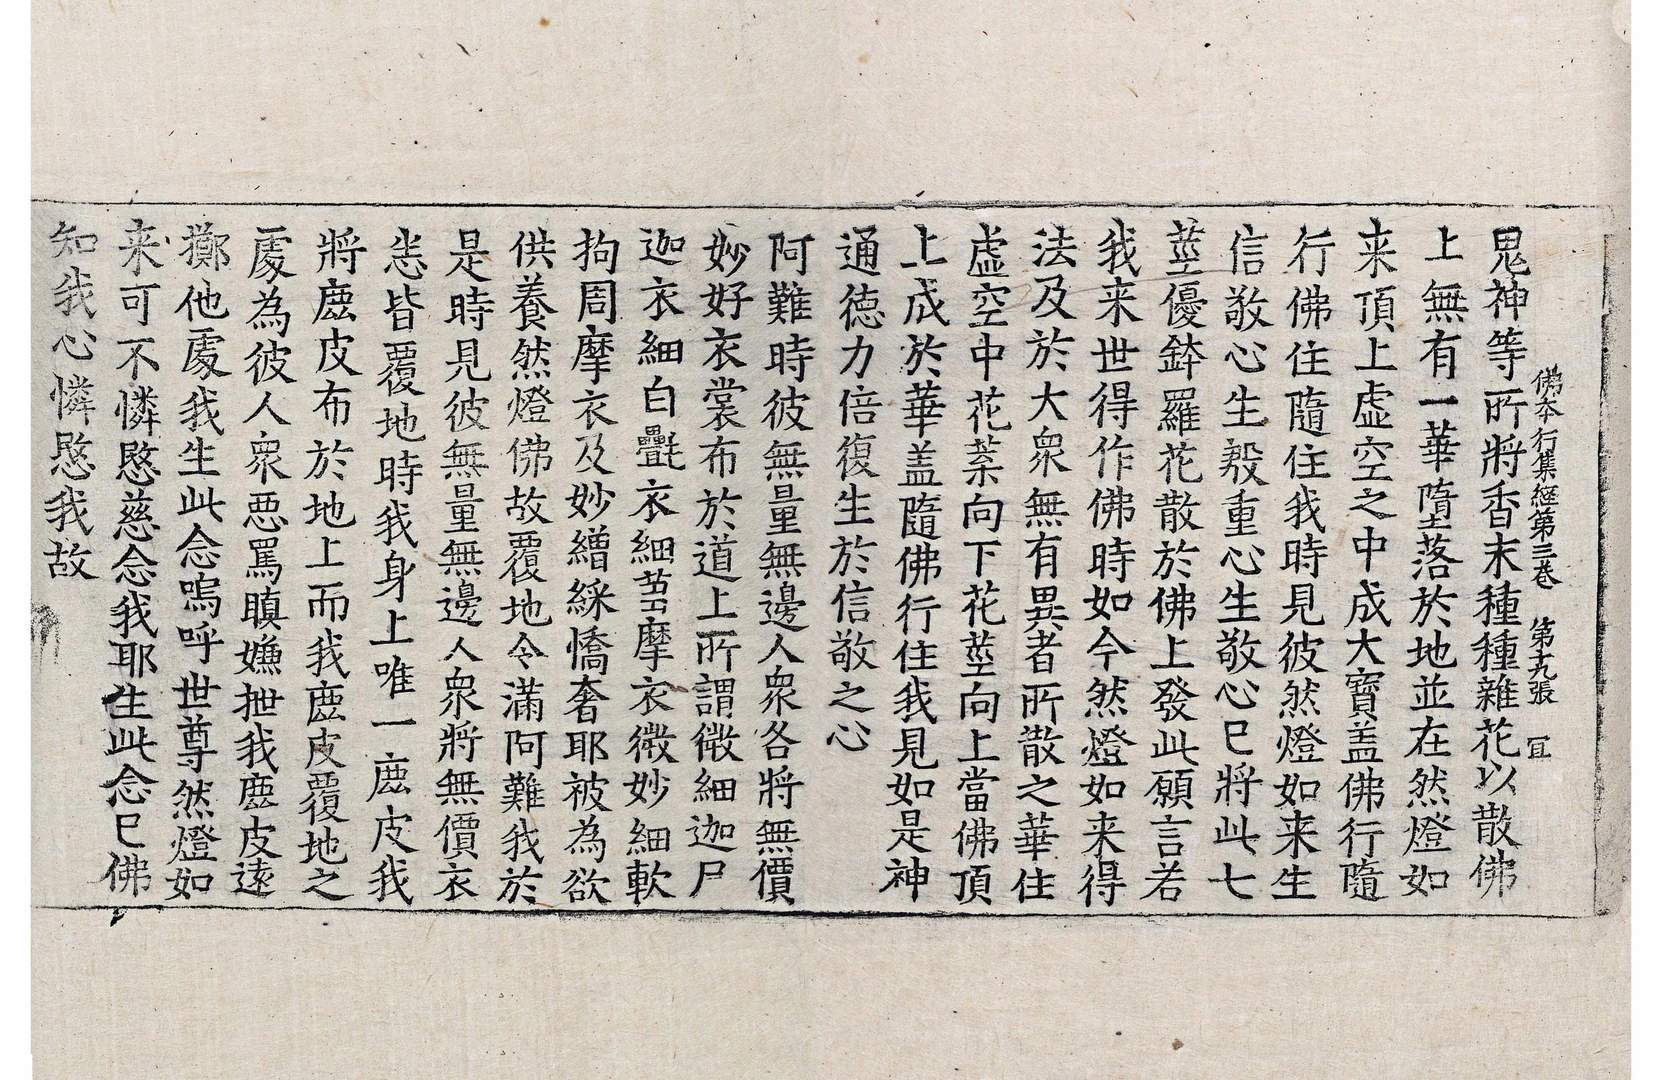 佛本行集經第三卷 第十九張 宜
鬼神等所將香末種種雜花以散佛
上無有一華墮落於地並在然燈如
来頂上虛空之中成大寶盖佛行隨
行佛住隨住我時見彼然燈如来生
信敬心生殷重心生敬心已將此七
莖優鉢羅花散於佛上發此願言若
我来世得作佛時如今然燈如来得
法及於大衆無有異者所散之華住
虛空中花葉向下花莖向上當佛頂
上成於華盖隨佛行住我見如是神
通德力倍復生於信敬之心
阿難時彼無量無邊人衆各將無價
妙好衣裳布於道上所謂微細迦尸
迦衣細白㲲衣細芻摩衣微妙細軟
拘周摩衣及妙繒綵憍奢耶被為欲
供養然燈佛故覆地令滿阿難我於
是時見彼無量無邊人衆將無價衣
悉皆覆地時我身上唯一鹿皮我
將鹿皮布於地上而我鹿皮覆地之
處為彼人衆惡罵瞋嫌抴我鹿皮遠
擲他處我生此念嗚呼世尊然燈如
来可不憐愍慈念我耶生此念已佛
知我心憐愍我故